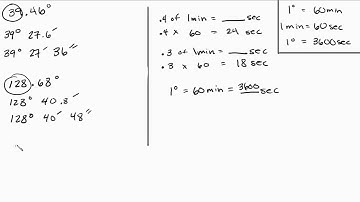 39.46°
39° 27.6′
39° 27′ 36″
128.68°
128° 40.8′
128° 40′ 48″
.4 of 1min = ___ sec
.4 × 60 = 24 sec
.3 of 1min = ___ sec
.3 × 60 = 18 sec
1° = 60min = 3600 sec
1° = 60min
1min = 60sec
1° = 3600sec